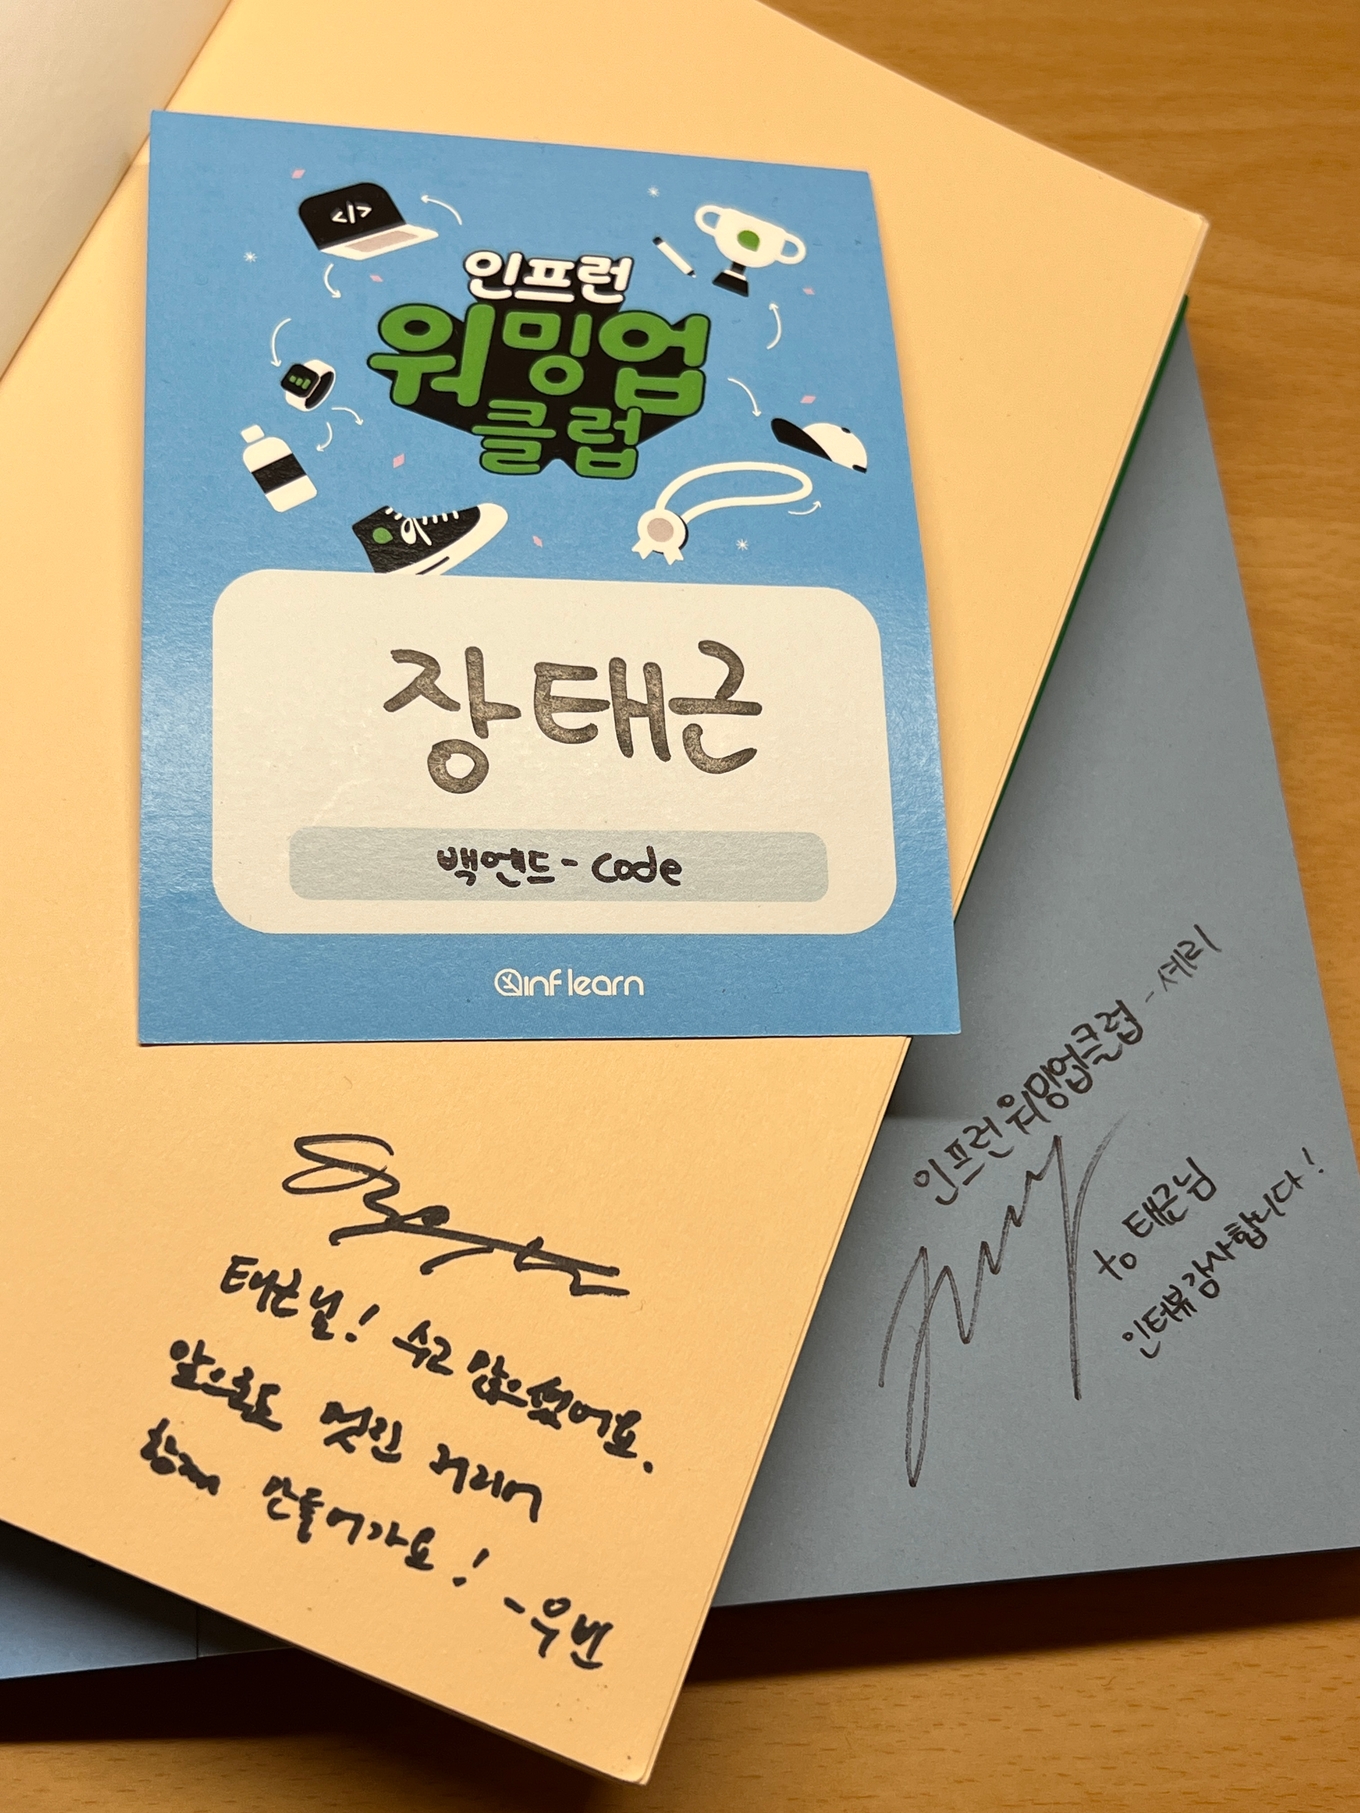 </>
인프런
워밍업
클럽
장태근
백엔드-code
inflearn
태근님! 수고 많으셨어요.
앞으로도 멋진 커리어
함께 만들어가요!
-우빈
인프런 워밍업클럽 - 셰리
to 태근님
인터뷰 감사합니다!